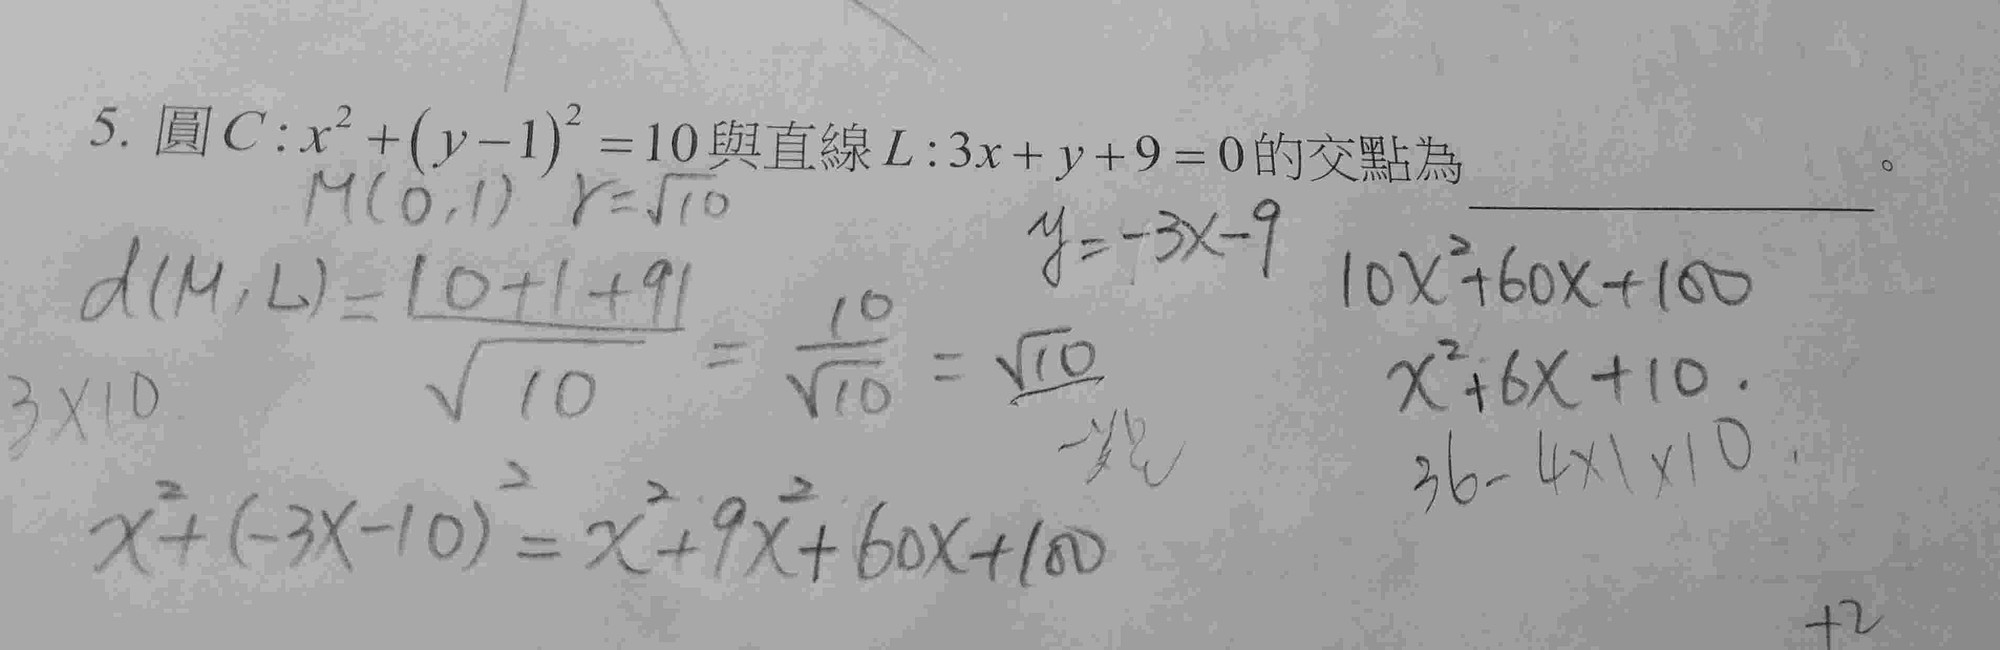 5. 圓 C : x² + (y − 1)² = 10 與直線 L : 3x + y + 9 = 0 的交點為 ________ 。
M(0,1) r=√10
y=-3x-9
d(M,L)= |0+1+9| / √10 = 10/√10 = √10
10x²+60x+100
x²+6x+10.
3×10
36-4×1×10.
x²+(-3x-10)² = x²+9x²+60x+100
+2